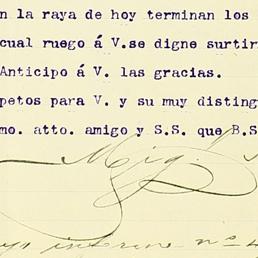 n la raya de hoy terminan los
cual ruego á V.se digne surtir
Anticipo á V. las gracias.
petos para V. y su muy disting
mo. atto. amigo y S.S. que B.S
Mig.